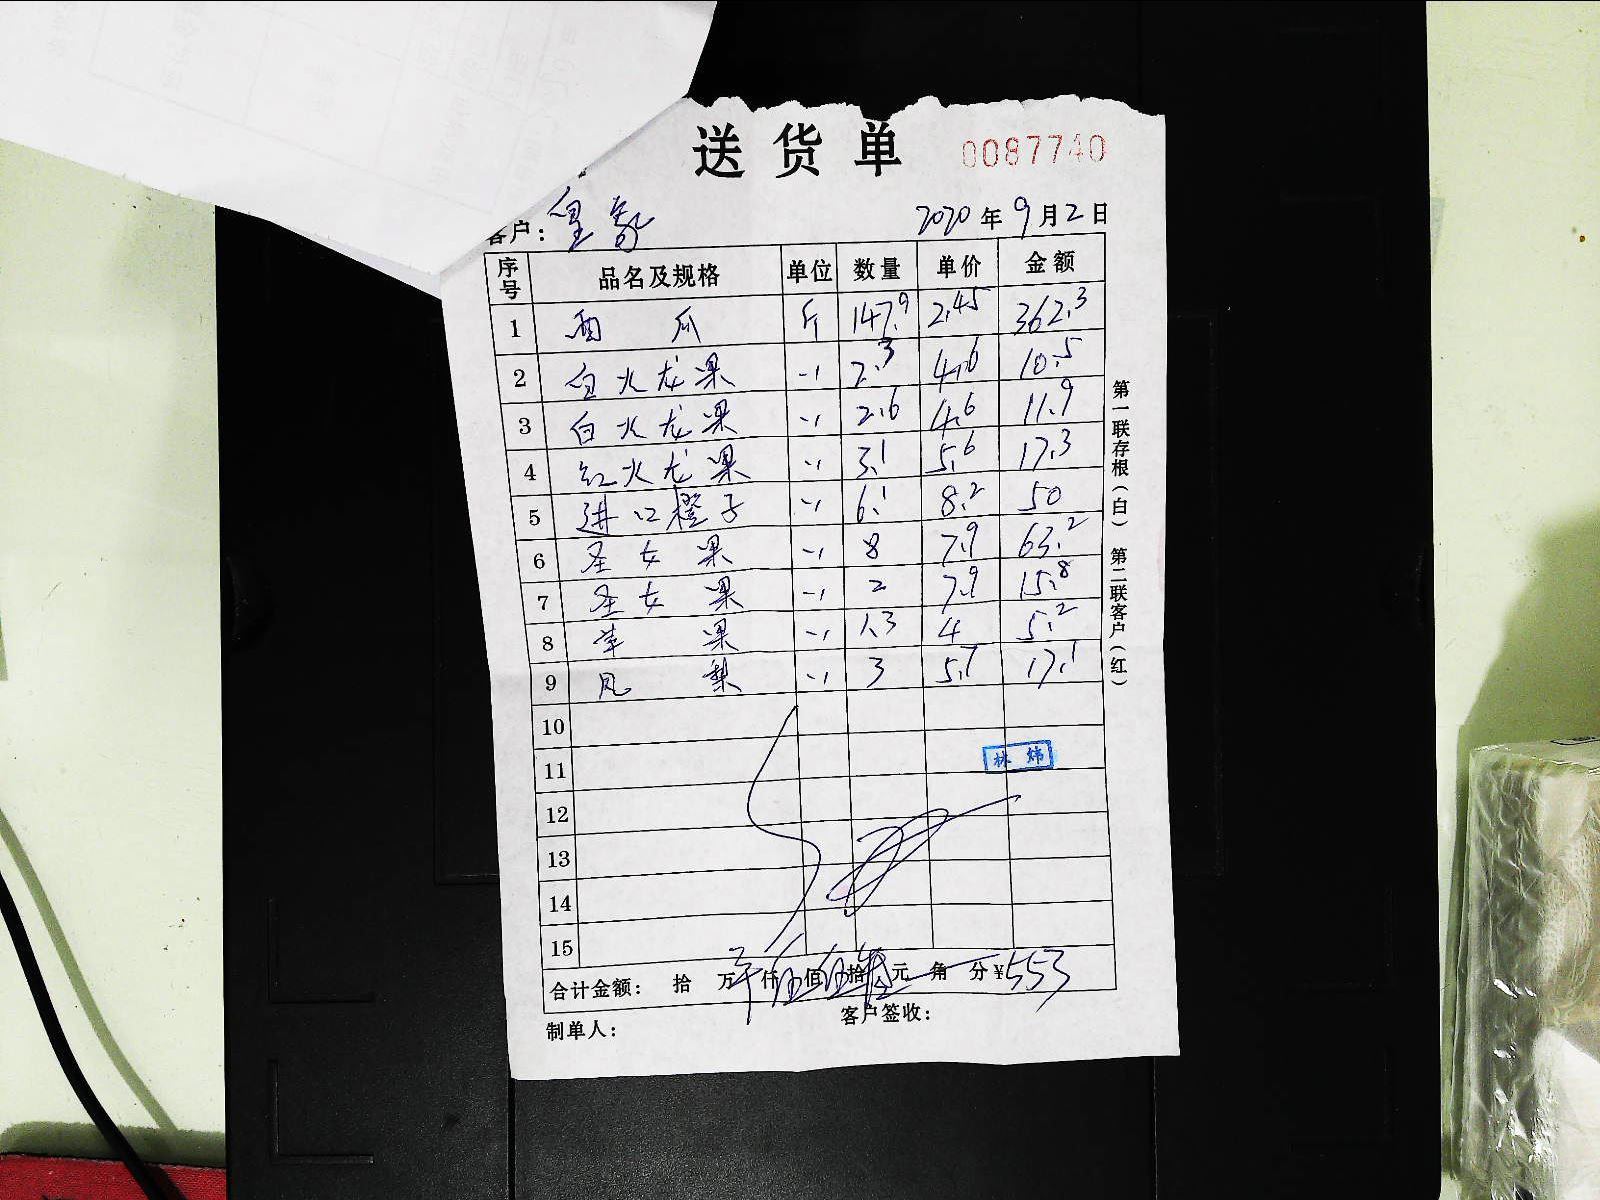 送货单 0087740
客户：皇家 2020年9月2日
序号 品名及规格 单位 数量 单价 金额
1 西瓜 斤 147.9 2.45 362.3
2 白火龙果 〃 2.3 4.6 10.5
3 白火龙果 〃 2.6 4.6 11.9
4 红火龙果 〃 3.1 5.6 17.3
5 进口橙子 〃 6.1 8.2 50
6 圣女果 〃 8 7.9 63.2
7 圣女果 〃 2 7.9 15.8
8 苹果 〃 1.3 4 5.2
9 凤梨 〃 3 5.7 17.1
10
11 林炜
12
13
14
15
合计金额： 拾 万 仟伍佰伍拾 元 角 分¥553
制单人： 客户签收：
第一联存根（白） 第二联客户（红）